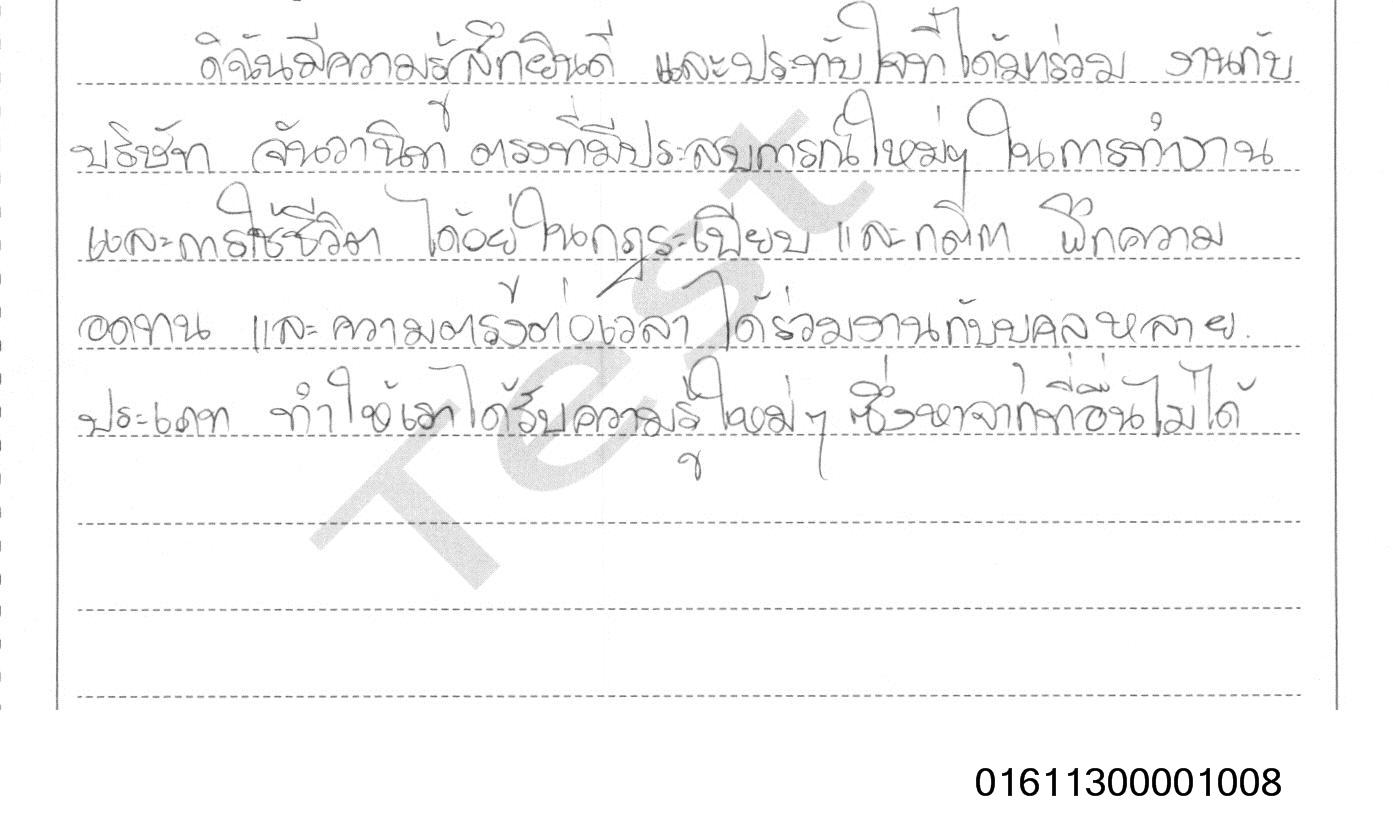 ดิฉันมีความรู้สึกยินดี และประทับใจที่ได้มาร่วม งานกับ
บริษัท จันวานิชย์ ตรงที่มีประสบการณ์ใหม่ๆ ในการทำงาน
และการใช้ชีวิต ได้อยู่ในกฎระเบียบ และกติกา ฝึกความ
อดทน และความตรงต่อเวลา ได้ร่วมงานกับบุคคลหลาย
ประเภท ทำให้เราได้รับความรู้ใหม่ๆ ซึ่งหาจากที่อื่นไม่ได้
Test
01611300001008